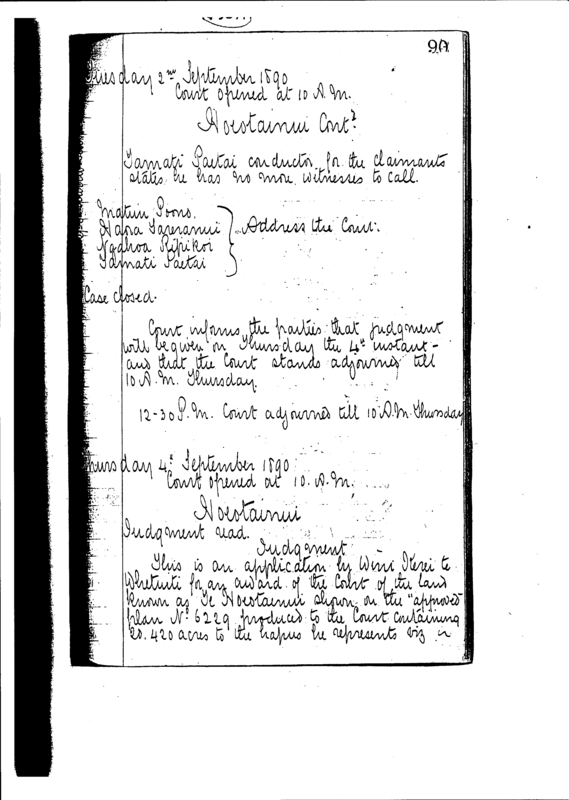 90
Tuesday 2nd September 1890
Court opened at 10 A.M.
Horotainui Contd
Tamati Paetai conductor for the claimants
states he has no more witnesses to call.
Matiu Pono.
Hapa Tareranui
Ngahoa Ripikoi
Tamati Paetai
Address the Court.
Case closed.
Court informs the parties that judgment
will be given on Thursday the 4th instant -
and that the Court stands adjourned till
10 A.M. Thursday
12-30 P.M. Court adjourned till 10 A.M. Thursday
Thursday 4th September 1890
Court opened at 10. A.M.
Horotainui
Judgment read.
Judgment
This is an application by Wini Kerei te
Whetuiti for an award of the Court of the land
known as Te Horotainui shown on the "approved"
plan No 6229 produced to the Court containing
20.420 acres to the hapus he represents viz